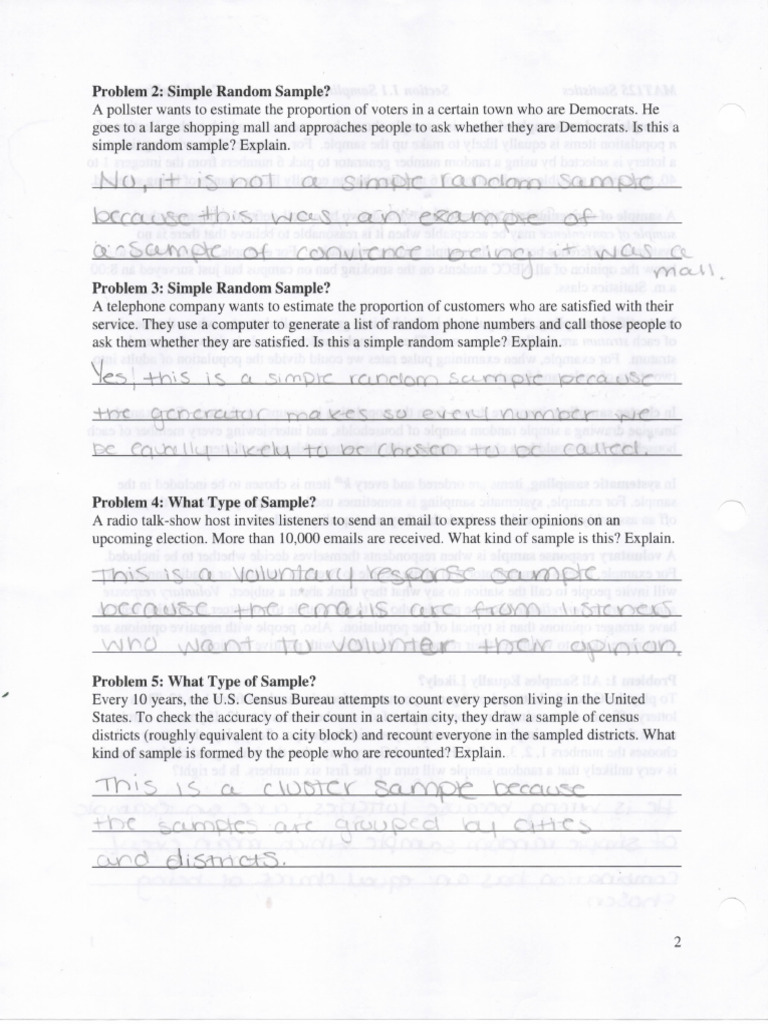 Problem 2: Simple Random Sample?
A pollster wants to estimate the proportion of voters in a certain town who are Democrats. He
goes to a large shopping mall and approaches people to ask whether they are Democrats. Is this a
simple random sample? Explain.
No, it is not a simple random sample
because this was an example of
a sample of convience being it was a
mall.
Problem 3: Simple Random Sample?
A telephone company wants to estimate the proportion of customers who are satisfied with their
service. They use a computer to generate a list of random phone numbers and call those people to
ask them whether they are satisfied. Is this a simple random sample? Explain.
Yes, this is a simple random sample because
the generator makes so every number we
be equally likely to be chosen to be called.
Problem 4: What Type of Sample?
A radio talk-show host invites listeners to send an email to express their opinions on an
upcoming election. More than 10,000 emails are received. What kind of sample is this? Explain.
This is a voluntary response sample
because the emails are from listeners
who want to volunter their opinion.
Problem 5: What Type of Sample?
Every 10 years, the U.S. Census Bureau attempts to count every person living in the United
States. To check the accuracy of their count in a certain city, they draw a sample of census
districts (roughly equivalent to a city block) and recount everyone in the sampled districts. What
kind of sample is formed by the people who are recounted? Explain.
This is a cluster sample because
the samples are grouped by cities
and districts.
2